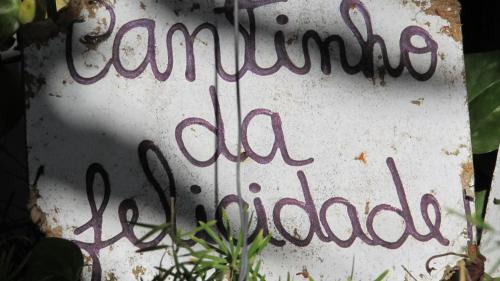 Cantinho
da
felicidade